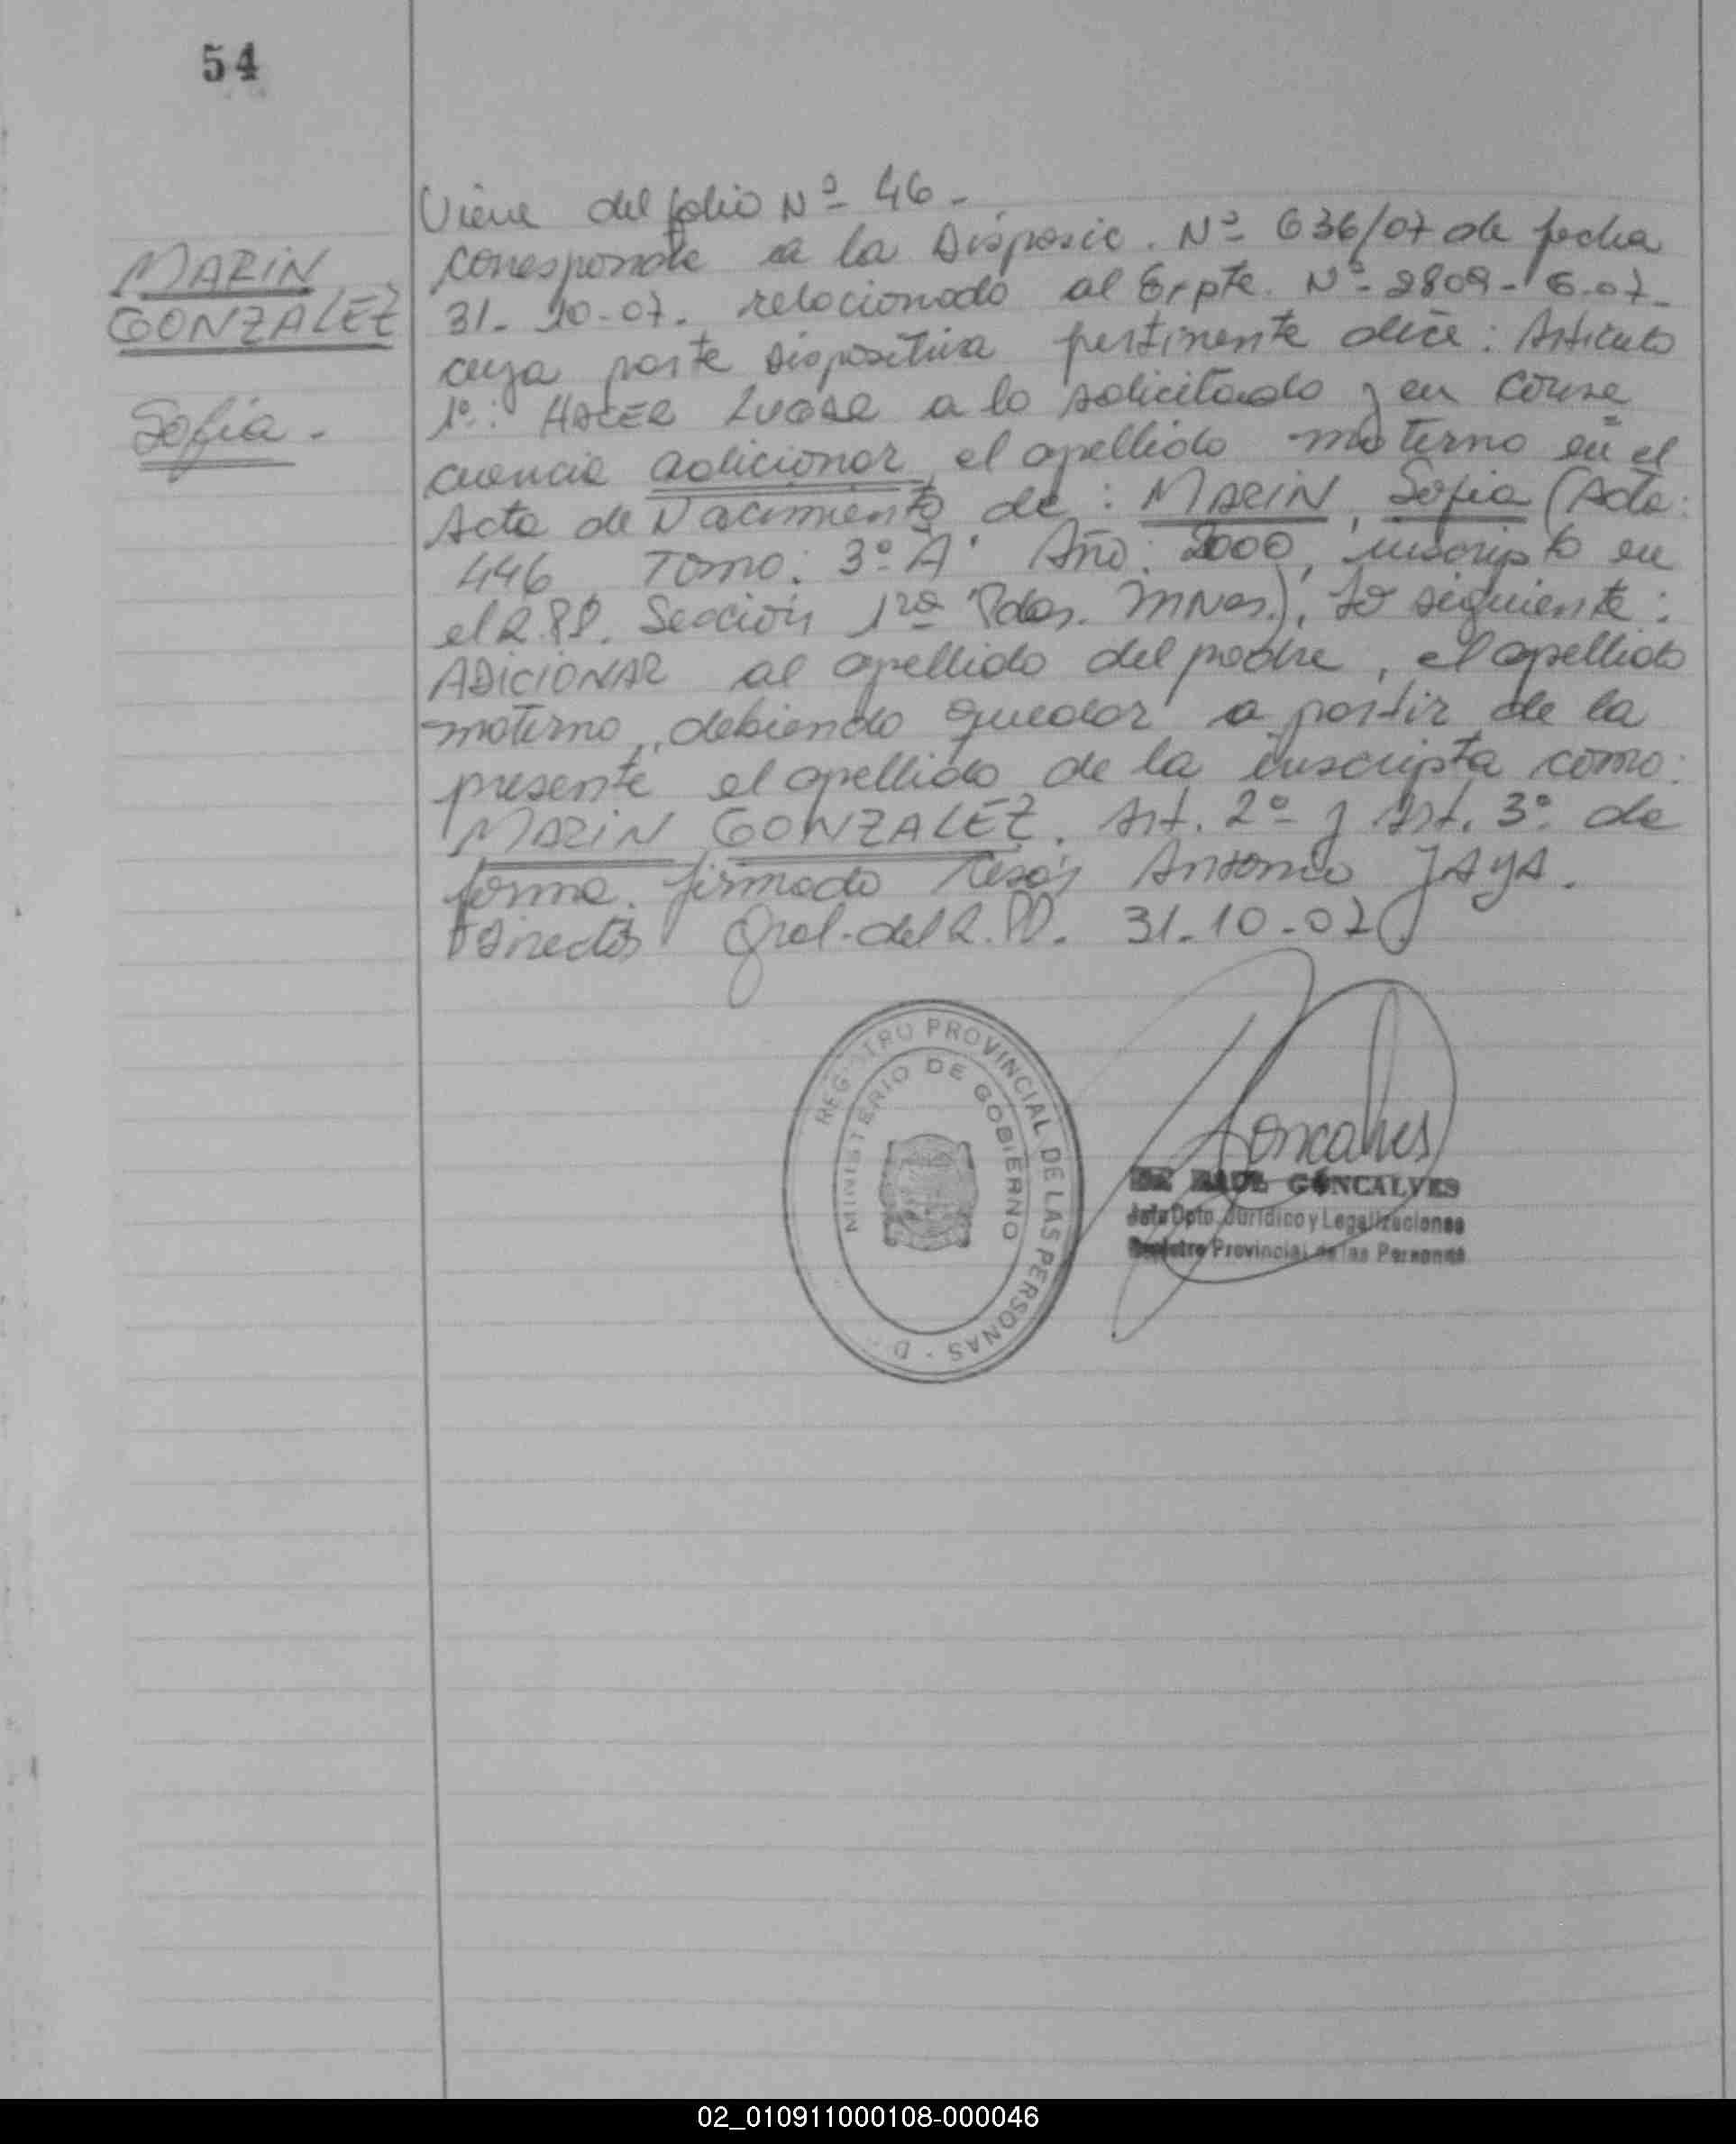 54
MARIN
GONZALEZ
Sofia.
Viene del folio Nº 46.
corresponde a la Disposic. Nº 636/07 de fecha
31-10-07. relacionado al Expte. Nº 2809-G-07-
cuya parte Dispositiva pertinente dice: Articulo
1º: HACER LUGAR a lo solicitado y en conse
cuencia adicionar el apellido materno en el
Acta de Nacimiento de: MARIN, Sofia (Acta:
446 Tomo: 3º A. Año: 2000, inscripto en
el R.PP. Sección 1ra Pdas. Mnes.), lo siguiente:
ADICIONAR al apellido del padre, el apellido
materno, debiendo quedar a partir de la
presente el apellido de la inscripta como:
MARIN GONZALEZ. Art. 2º y Art. 3º de
forma. firmado Antonio JAYA.
Director Gral. del R.PP. 31-10-07
REGISTRO PROVINCIAL DE LAS PERSONAS
MINISTERIO DE GOBIERNO
Goncalves
DR. RAUL GONCALVES
Jefe Dpto. Jurídico y Legalizaciones
Registro Provincial de las Personas
02_010911000108-000046